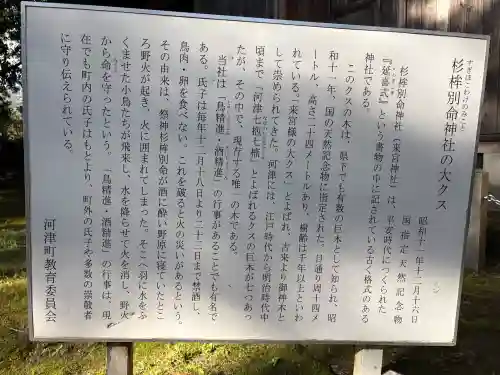 すぎほこわけのみこと
杉桙別命神社の大クス
昭和十一年十二月十六日
国指定天然記念物
杉桙別命神社(来宮神社)は、平安時代につくられた
『延喜式』という書物の中に記されている古く格式のある
神社である。
このクスの木は、県下でも有数の巨木として知られ、昭
和十一年、国の天然記念物に指定された。目通り周十四メ
ートル、高さ二十四メートルあり、樹齢は千年以上といわ
れている。「来宮様の大クス」とよばれ、古来より御神木と
して崇められてきた。河津には、江戸時代から明治時代中
頃まで「河津七抱七楠」とよばれるクスの巨木が七つあっ
たが、その中で、現存する唯一の木である。
当社は「鳥精進・酒精進」の行事があることでも有名で
ある。氏子は毎年十二月十八日より二十三日まで禁酒し、
鳥肉・卵を食べない。これを破ると火の災いがあるという。
その由来は、祭神杉桙別命が酒に酔い野原に寝ていたとこ
ろ野火が起き、火に囲まれてしまった。そこへ羽に水をふ
くませた小鳥たちが飛来し、水を降らせて火を消し、野火
から命を守ったという。「鳥精進・酒精進」の行事は、現
在でも町内の氏子はもとより、町外の氏子や多数の崇敬者
に守り伝えられている。
河津町教育委員会